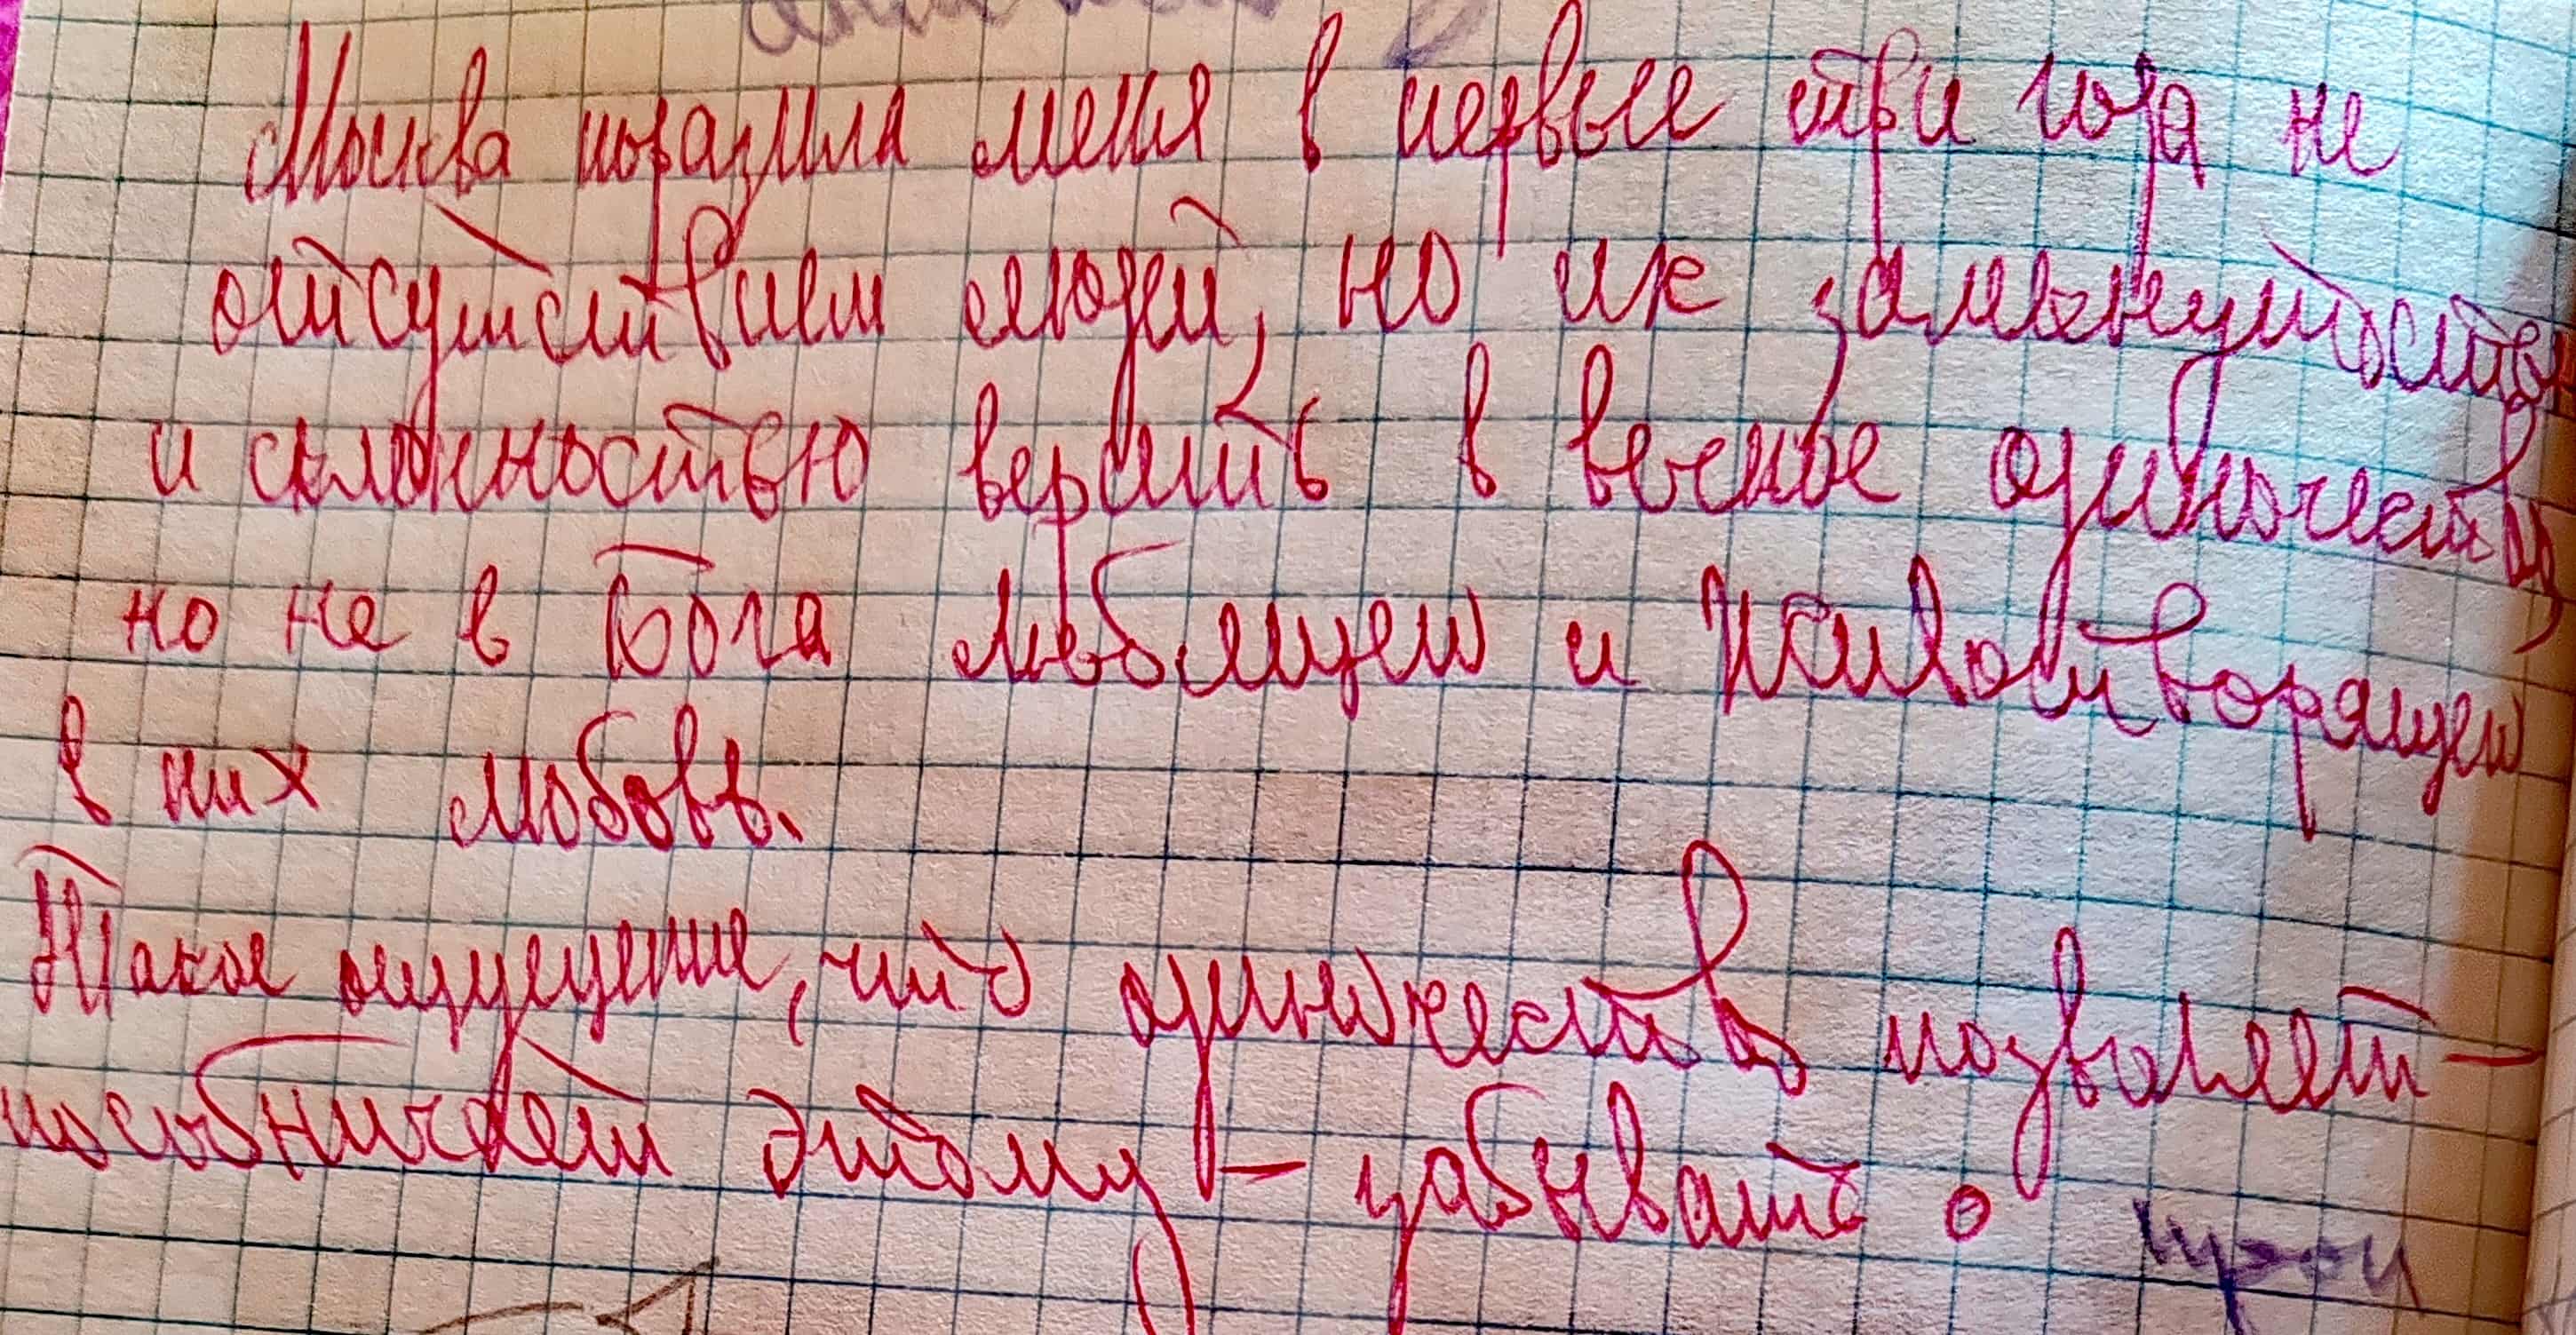 Москва поразила меня в первые три года не
отсутствием людей, но их замкнутостью
и склонностью верить в вечное одиночество,
но не в Бога любящем и животворящем
в них любовь.
Такое ощущение, что одиночество позволяет -
пособничает этому - забывать о